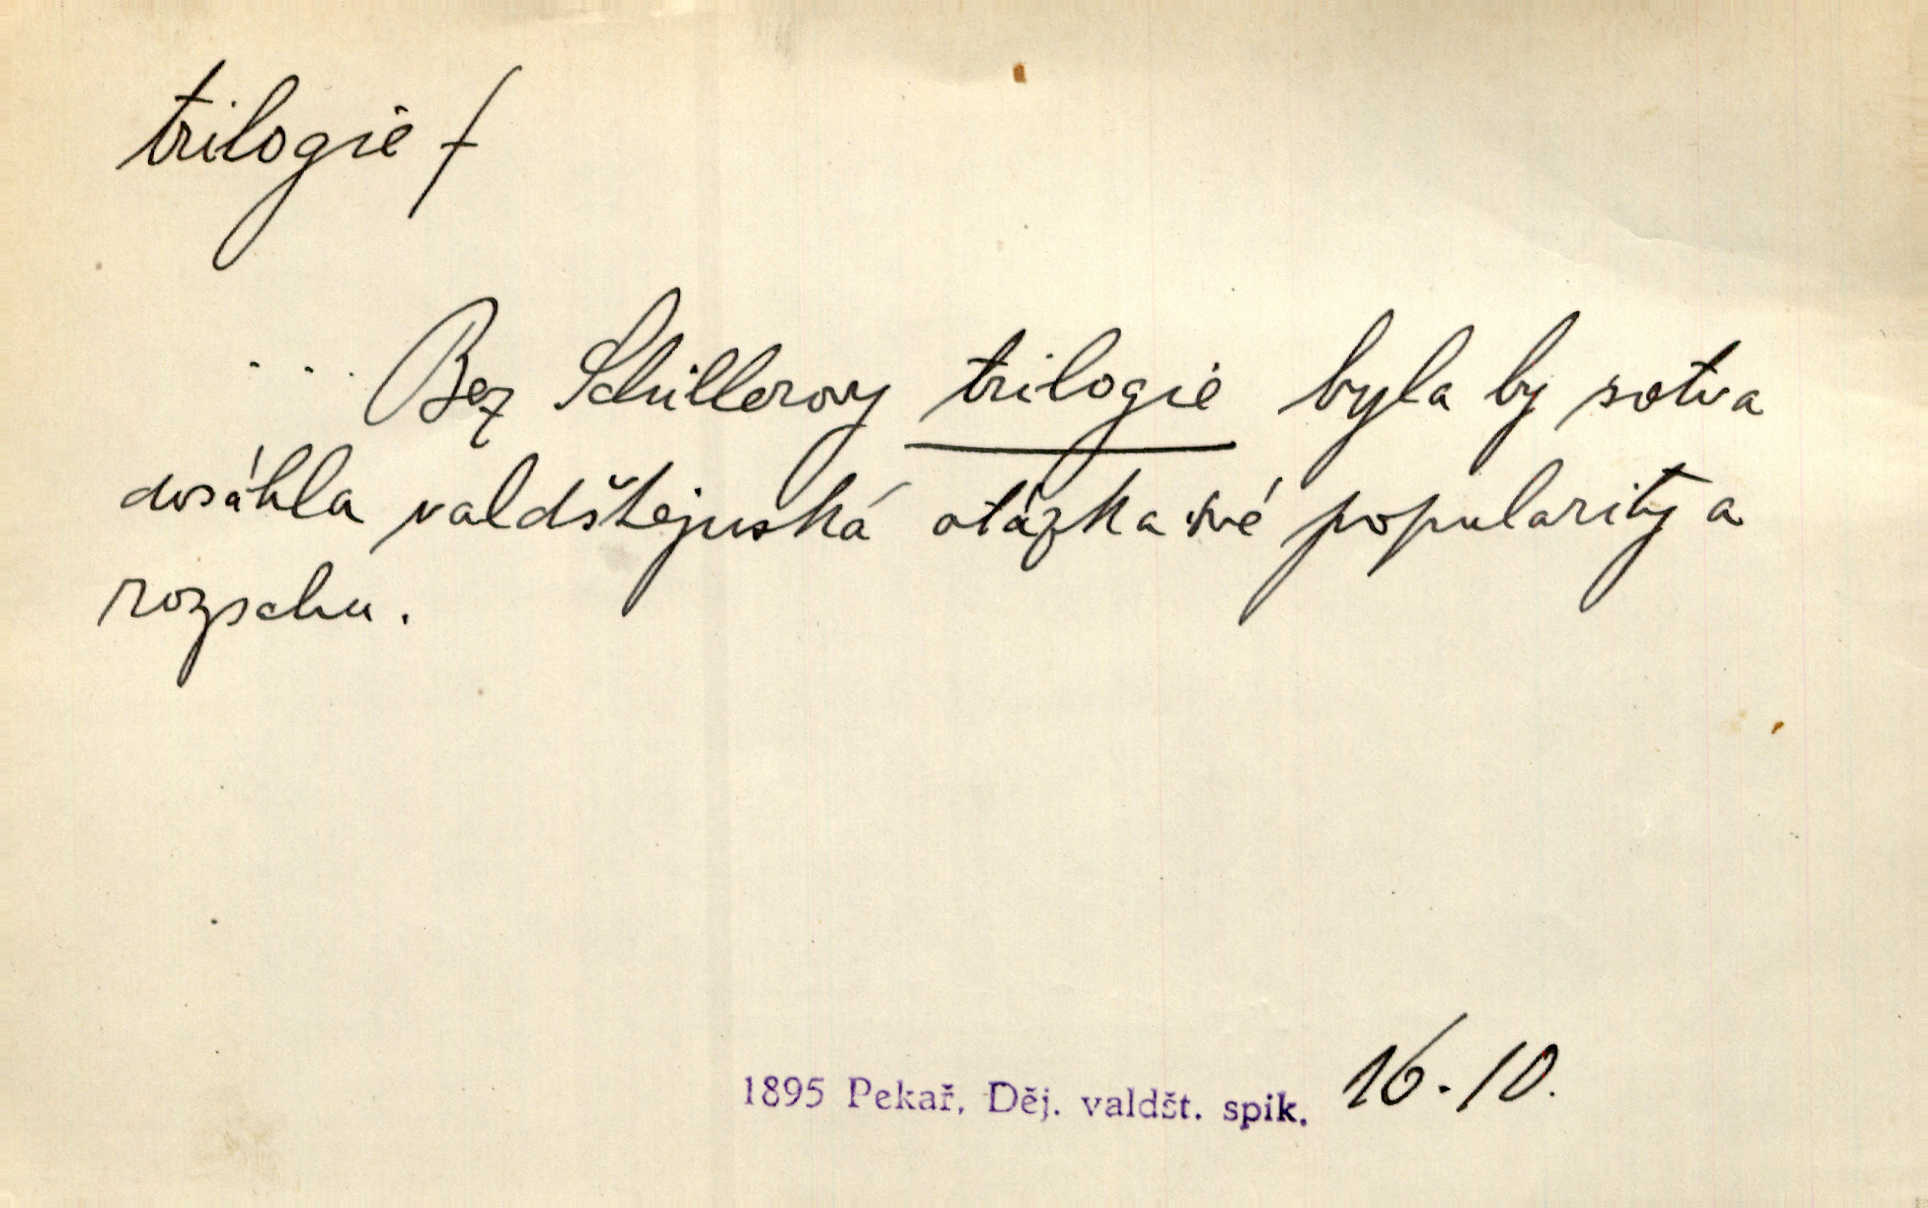 trilogie f
... Bez Schillerovy trilogie byla by sotva
dosáhla valdštejnská otázka své popularity a
rozsahu.
1895 Pekař, Děj. valdšt. spik. 16.10.